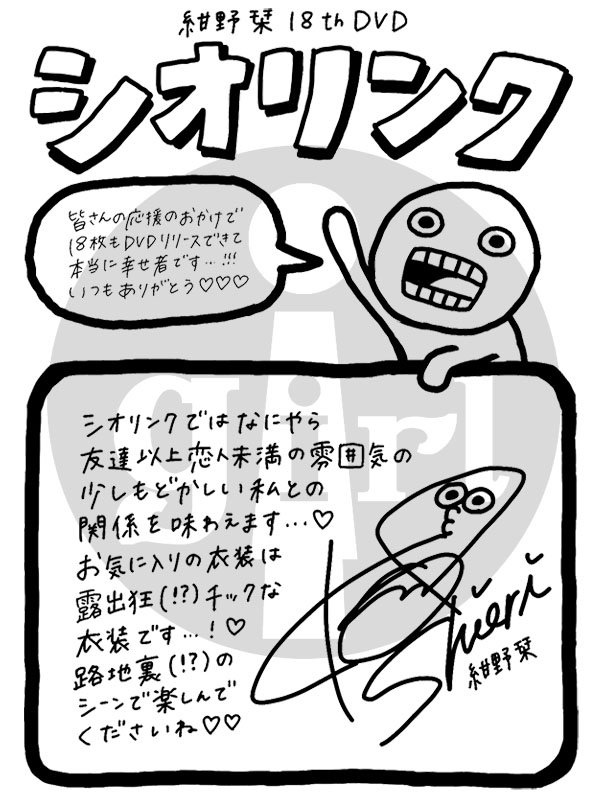 紺野栞 18th DVD
シオリンク
皆さんの応援のおかげで
18枚もDVDリリースできて
本当に幸せ者です…!!!
いつもありがとう♡♡♡
シオリンクではなにやら
友達以上恋人未満の雰囲気の
少しもどかしい私との
関係を味わえます…♡
お気に入りの衣装は
露出狂(!?)チックな
衣装です…!♡
路地裏(!?)の
シーンで楽しんで
くださいね♡♡
Shiori
紺野栞
girl